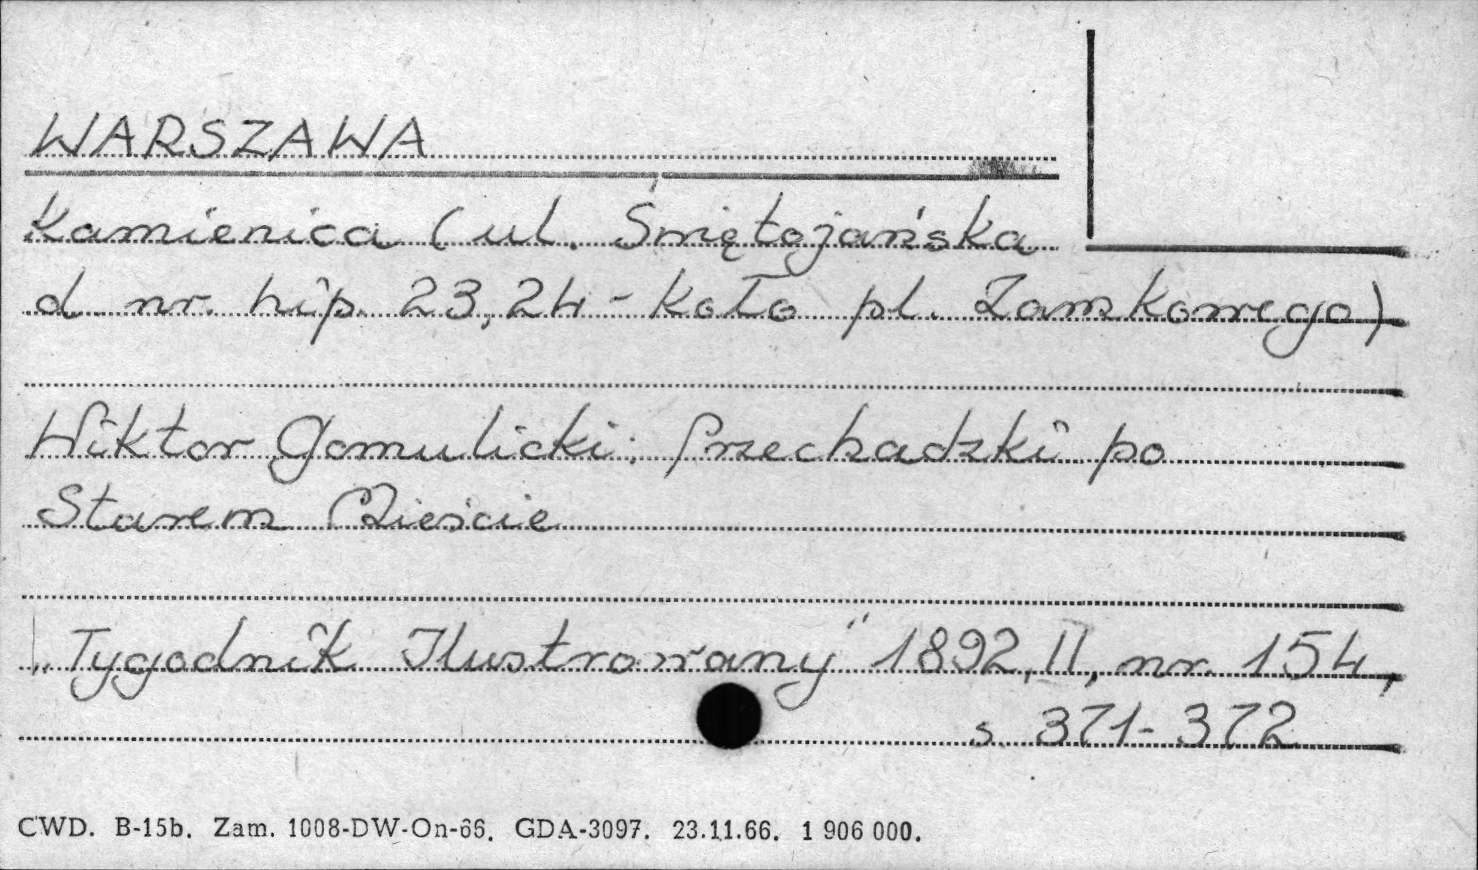 WARSZAWA
Kamienica (ul. Świętojańska
d. nr. hip. 23, 24 - koło pl. Zamkowego)
Wiktor Gomulicki: Przechadzki po
Starem Mieście
„Tygodnik Ilustrowany" 1892, II, nr. 154,
s. 371-372
CWD. B-15b. Zam. 1008-DW-On-66. GDA-3097. 23.11.66. 1 906 000.